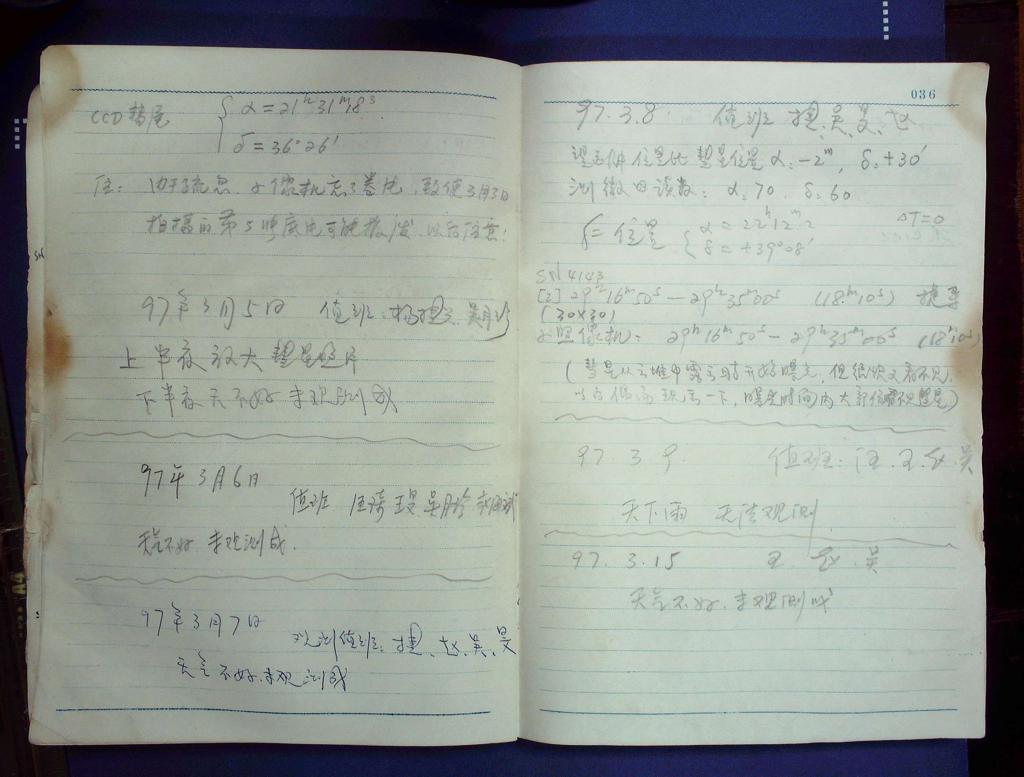 CCD 彗尾 { α=21ʰ31ᵐ18ˢ
δ=36°26′
注: 由于疏忽, 照像机忘了卷片, 致使3月3日
拍摄的第5张底片可能报废. 以后注意!
97年3月5日 值班:
上半夜放大彗星照片
下半夜天不好 未观测成
97年3月6日
值班 汪琦
天气不好 未观测成.
97年3月7日
观测值班: 捷、赵、吴、旻
天气不好.未观测成
036
97.3.8 值班 捷.吴.旻.赵
位置比彗星位置 α:-2ᵐ, δ:+30′
测微目读数: α:70. δ:60
位置 { α=22ʰ12ᵐ2
δ=+39°08′
ΔT=0
SN 4143
[2] 29ʰ16ᵐ50ˢ—29ʰ35ᵐ00ˢ (18ᵐ10ˢ)
(30×30)
照像机: 29ʰ16ᵐ50ˢ—29ʰ35ᵐ00ˢ (18ᵐ10ˢ)
(彗星从云堆中露云时开始曝光, 但很快又看不见.
一下, 曝光时间内大部份看不见彗星)
97.3.9. 值班: 汪.王.赵.吴
天下雨 无法观测.
97.3.15 王.赵.吴
天气不好.未观测成